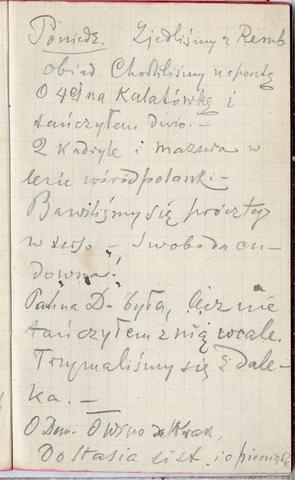 Poniedz. Zjedliśmy z Remb.
obiad. Chodziliśmy na pocztę
O 4ej na Kalatówkę i
tańczyłem dwo. –
2 kadryle i mazura w
lesie wśród polanki –
Bawiliśmy się prócz tego
w – Swoboda cu-
downa!
Panna D. była, lecz nie
tańczyłem z nią wcale.
Trzymaliśmy się z dale-
ka. –
O Dm.
Do Stasia list i o pieniądz